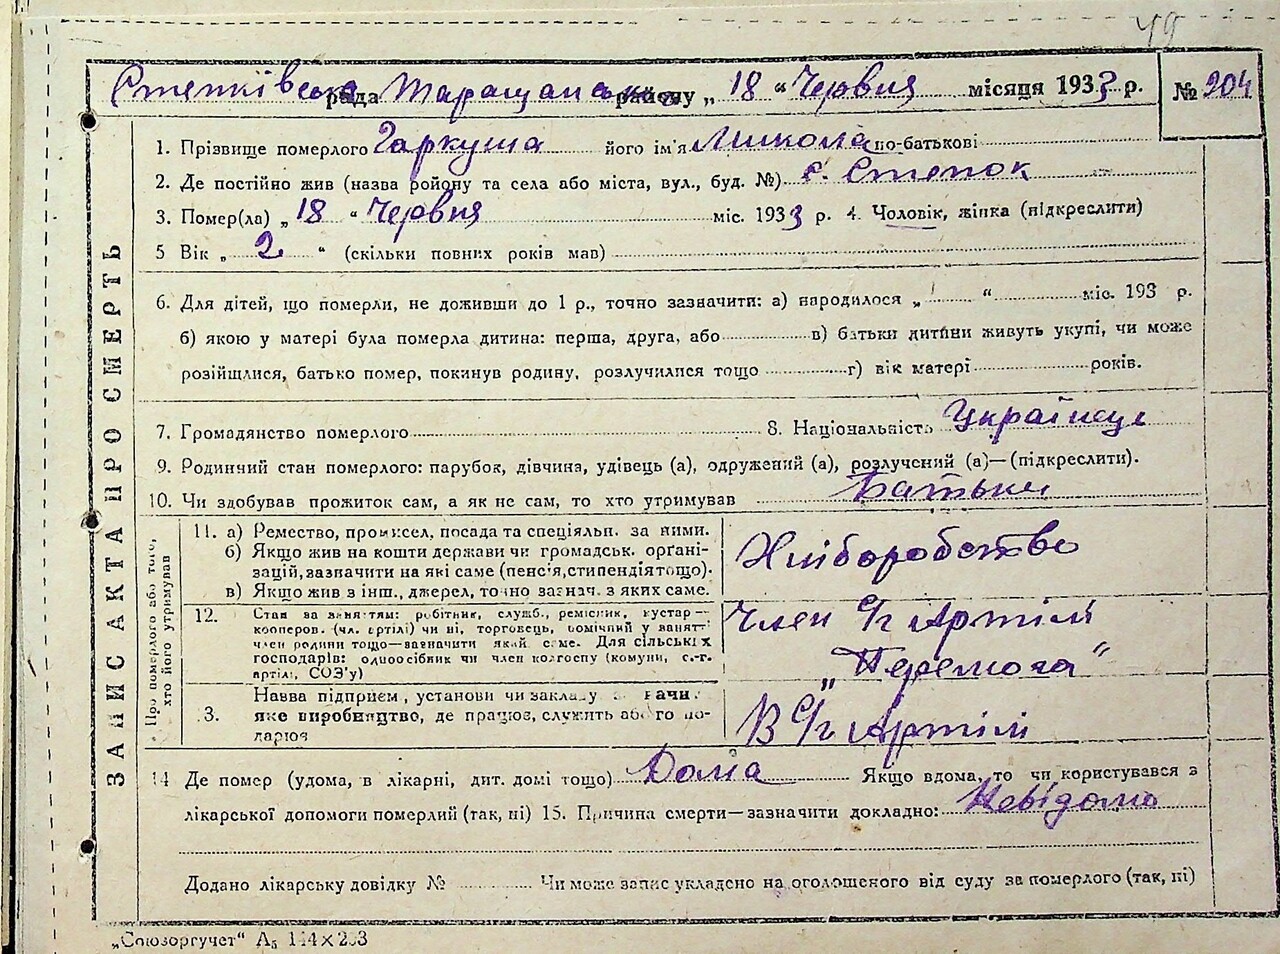 49
Степківська рада Таращанського району „ 18 “ Червня місяця 1933 р. № 204
1. Прізвище померлого Гаркуша його ім'я Микола по-батькові
2. Де постійно жив (назва ройону та села або міста, вул., буд. №) с. Степок
3. Помер(ла) „ 18 “ Червня міс. 1933 р. 4. Чоловік, жінка (підкреслити)
5 Вік „ 2 “ (скільки повних років мав)
6. Для дітей, що померли, не доживши до 1 р., точно зазначити: а) народилося „ “ міс. 193 р.
б) якою у матері була померла дитина: перша, друга, або в) батьки дитини живуть укупі, чи може
розійшлися, батько помер, покинув родину, розлучилися тощо г) вік матері років.
7. Громадянство померлого 8. Національність Українець
9. Родинчий стан померлого: парубок, дівчина, удівець (а), одружений (а), розлучений (а)—(підкреслити).
10. Чи здобував прожиток сам, а як не сам, то хто утримував Батьки
ЗАПИС АКТА ПРО СМЕРТЬ
Про померлого або того,
хто його утримував
11. а) Ремество, промисел, посада та спеціяльн. за ними.
б) Якщо жив на кошти держави чи громадськ. орґані-
зацій, зазначити на які саме (пенсія, стипендія тощо).
в) Якщо жив з інш., джерел, точно зазнач. з яких саме.
Хліборобство
12. Стан за заняттям: робітник, служб., ремісник, кустар—
кооперов. (чл. артілі) чи ні, торговець, помічний у занят.
член родини тощо—зазначити який саме. Для сільських
господарів: одноосібник чи член колгоспу (комуни, с.-г.
артілі, СОЗ'у)
Член С/г Артілі
„Перемога“
3. Назва підприєм., установи чи закладу зазначи.
яке виробництво, де працює, служить або го по-
даршоз
В С/г Артілі
14 Де помер (удома, в лікарні, дит. домі тощо) Дома Якщо вдома, то чи користувався з
лікарської допомоги померлий (так, ні) 15. Причина смерти—зазначити докладно: Невідомо
Додано лікарську довідку № Чи може запис укладено на оголошеного від суду за померлого (так, ні)
„Союзоргучет“ А₅ 144×203